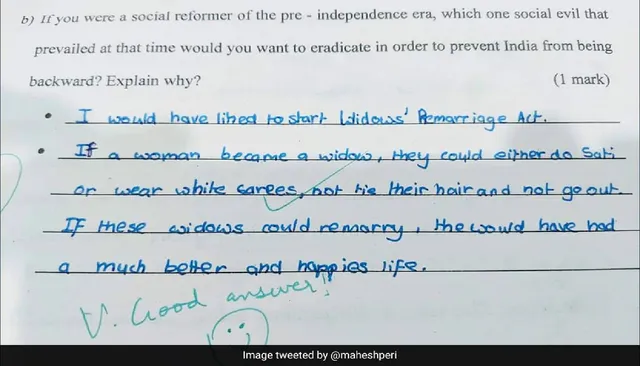 b) If you were a social reformer of the pre - independence era, which one social evil that
prevailed at that time would you want to eradicate in order to prevent India from being
backward? Explain why? (1 mark)
• I would have liked to start Widows' Remarriage Act.
• If a woman became a widow, they could either do Sati
or wear white sarees, not tie their hair and not go out.
If these widows could remarry, the would have had
a much better and happies life.
V. Good answer!!
Image tweeted by @maheshperi